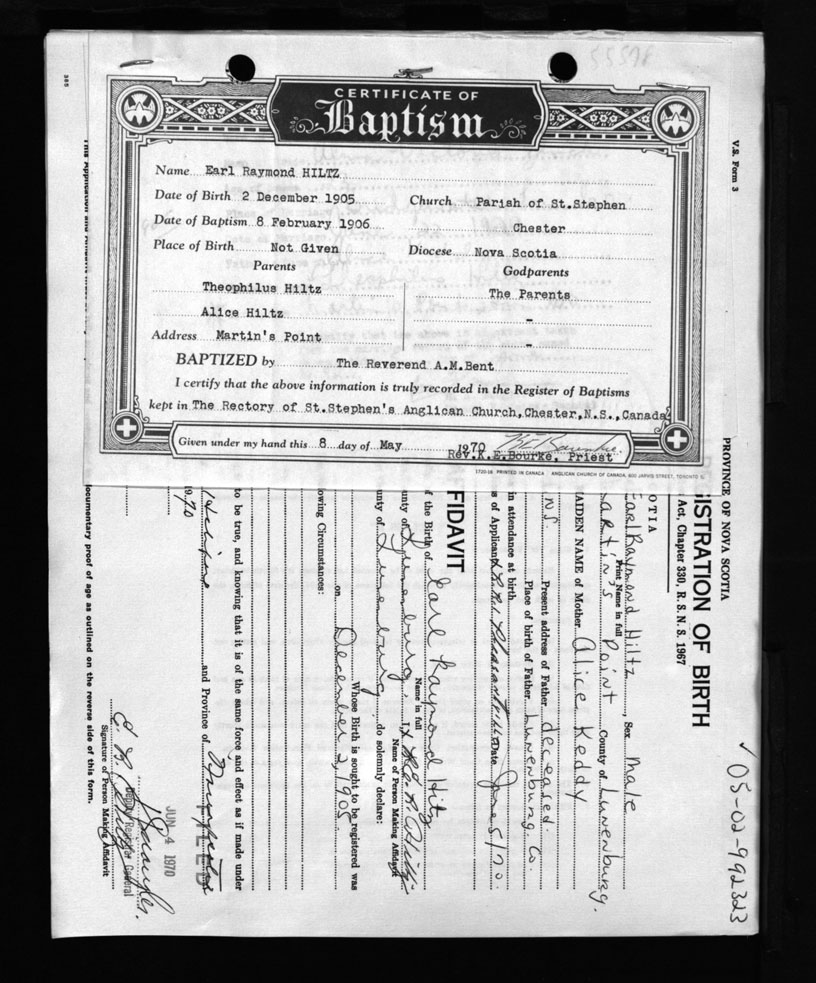 55578
CERTIFICATE OF
Baptism
Name Earl Raymond HILTZ
Date of Birth 2 December 1905
Church Parish of St.Stephen
Date of Baptism 8 February 1906
Chester
Place of Birth Not Given
Diocese Nova Scotia
Parents
Godparents
Theophilus Hiltz
The Parents
Alice Hiltz
-
Address Martin's Point
-
BAPTIZED by The Reverend A.M.Bent
I certify that the above information is truly recorded in the Register of Baptisms
kept in The Rectory of St.Stephen's Anglican Church,Chester,N.S.,Canada
Given under my hand this 8 day of May 1970
Rev.K.E.Bourke, Priest
1720-16 PRINTED IN CANADA ANGLICAN CHURCH OF CANADA, 600 JARVIS STREET, TORONTO 5
V.S. Form 3
05-02-992323
PROVINCE OF NOVA SCOTIA
ISTRATION OF BIRTH
Act, Chapter 330, R. S. N. S. 1967
OTIA
Earl Raymond Hiltz, Sex Male
Print Name in full
artin's Point County of Lunenburg.
AIDEN NAME of Mother Alice Keddy
N.S. Present address of Father deceased.
Place of birth of Father Lunenburg Co.
in attendance at birth
s of Applicant Date June 5/70.
FIDAVIT
f the Birth of Earl Raymond Hiltz
Name in full
unty of Lunenburg, I,
Name of Person Making Affidavit
unty of Lunenburg, do solemnly declare:
Whose Birth is sought to be registered was
on December 2, 1905
owing Circumstances:
to be true, and knowing that it is of the same force and effect as if made under
and Province of
1970
FILED
JUN 4 1970
Deputy Registrar General
Signature of Person Making Affidavit
ocumentary proof of age as outlined on the reverse side of this form.